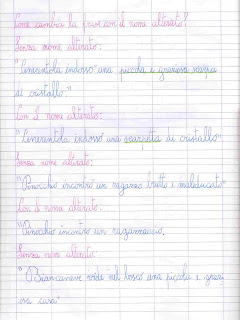 Come cambia la frase con il nome alterato?
Senza nome alterato:
"Cenerentola indossò una piccola e graziosa scarpa
di cristallo."
Con il nome alterato:
"Cenerentola indossò una scarpetta di cristallo"
Senza nome alterato:
"Pinocchio incontrò un ragazzo brutto e maleducato"
Con il nome alterato:
"Pinocchio incontrò un ragazzaccio.
Senza nome alterato:
"Biancaneve vide nel bosco una piccola e grazi
osa casa"